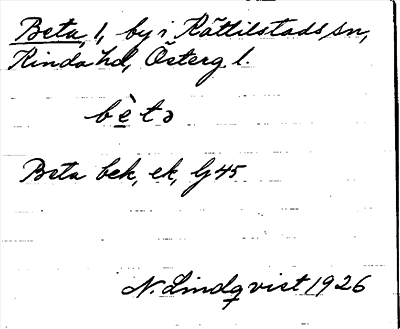 Beta, 1, by i Rättilstads sn,
Kinda hd, Österg l.
bè̱tə
Beta bek, ek, G45
N. Lindqvist 1926